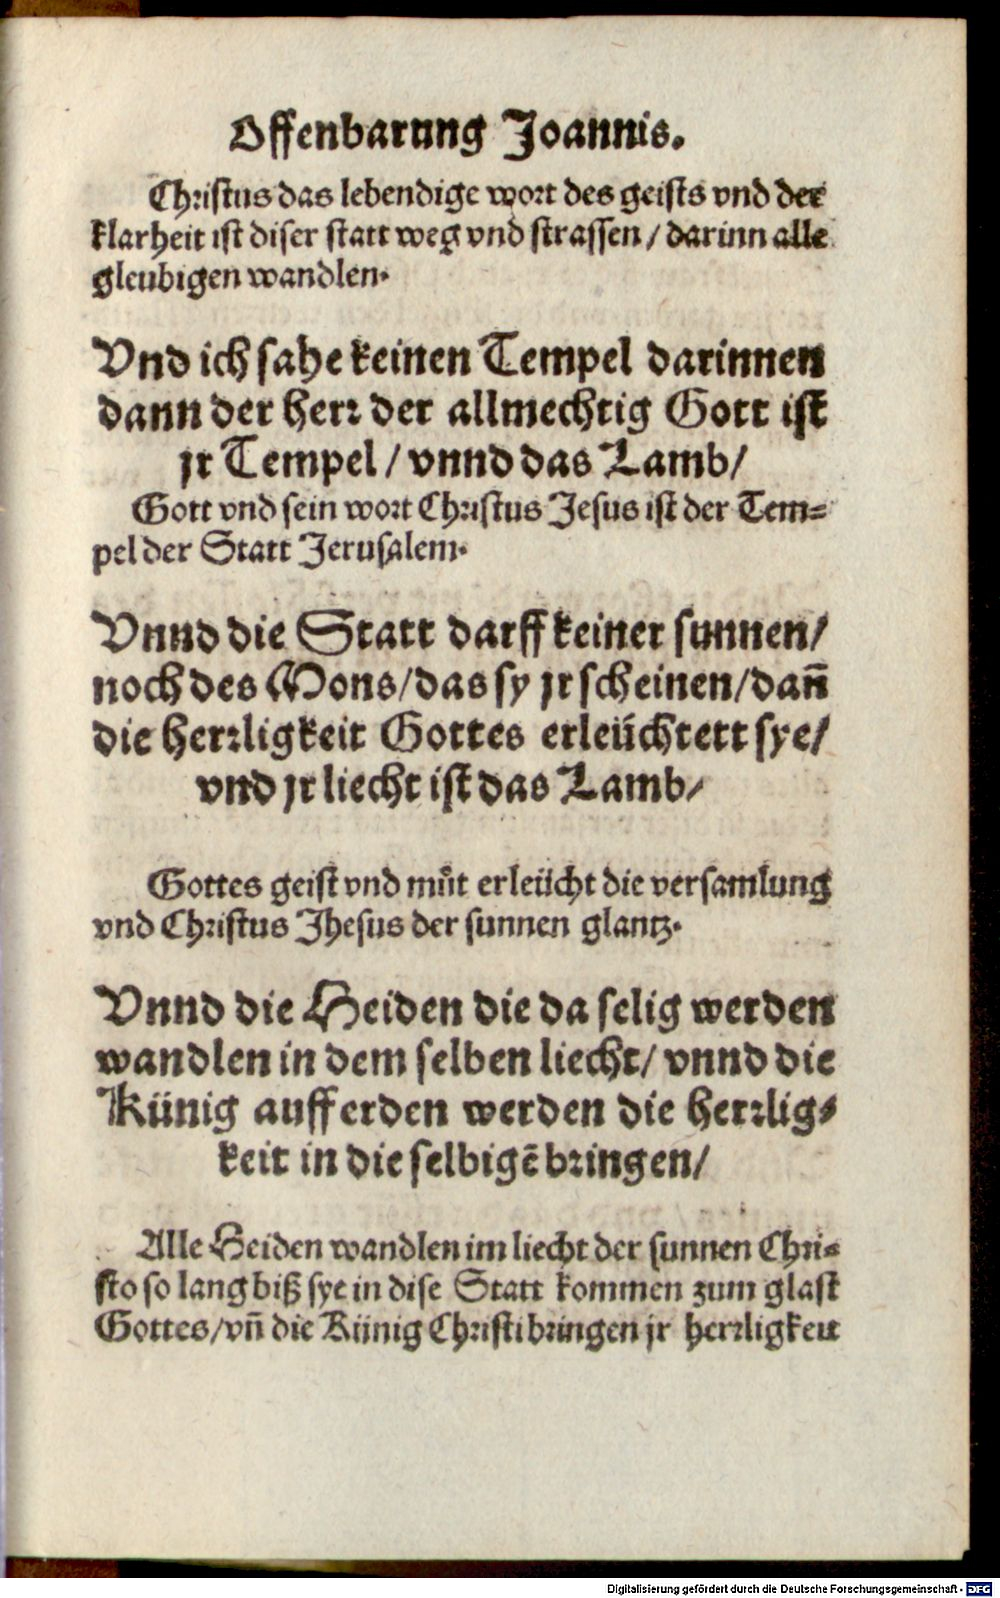 Offenbarung Joannis.
Christus das lebendige wort des geists vnd der
klarheit ist diser statt weg vnd strassen / darinn alle
gleubigen wandlen.
Vnd ich sahe keinen Tempel darinnen
dann der herr der allmechtig Gott ist
jr Tempel / vnnd das Lamb /
Gott vnd sein wort Christus Jesus ist der Tem-
pel der Statt Jerusalem.
Vnnd die Statt darff keiner sunnen /
noch des Mons / das sy jr scheinen / dañ
die herrligkeit Gottes erleüchtett sye /
vnd jr liecht ist das Lamb /
Gottes geist vnd můt erleücht die versamlung
vnd Christus Jhesus der sunnen glantz.
Vnnd die Heiden die da selig werden
wandlen in dem selben liecht / vnnd die
Künig auff erden werden die herrlig-
keit in die selbigẽ bringen /
Alle Heiden wandlen im liecht der sunnen Chri-
sto so lang biß sye in dise Statt kommen zum glast
Gottes / vñ die Künig Christi bringen jr herrligkeit
Digitalisierung gefördert durch die Deutsche Forschungsgemeinschaft - DFG